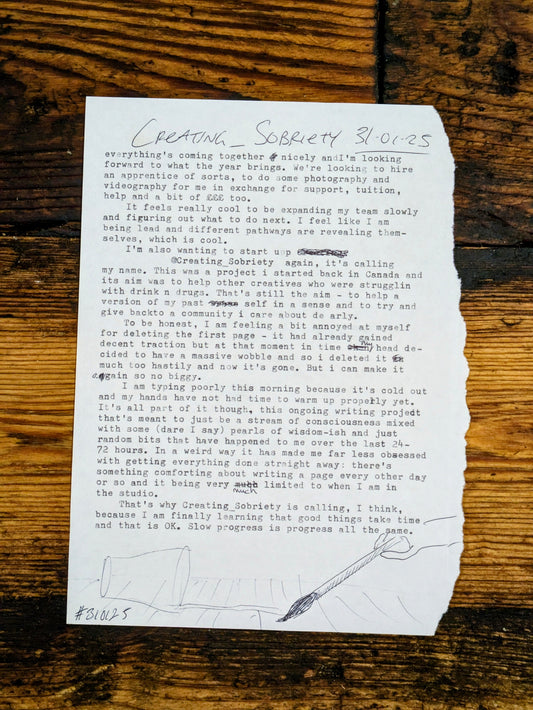 CREATING_SOBRIETY 31-01-25
everything's coming together nicely andI'm looking
forward to what the year brings. We're looking to hire
an apprentice of sorts, to do some photography and
videography for me in exchange for support, tuition,
help and a bit of £££ too.
It feels really cool to be expanding my team slowly
and figuring out what to do next. I feel like I am
being lead and different pathways are revealing them-
selves, which is cool.
I'm also wanting to start uop
@Creating_Sobriety again, it's calling
my name. This was a project i started back in Canada and
its aim was to help other creatives who were strugglin
with drink n drugs. That's still the aim - to help a
version of my past self in a sense and to try and
give backto a community i care about de arly.
To be honest, I am feeling a bit annoyed at myself
for deleting the first page - it had already gained
decent traction but at that moment in time my head de-
cided to have a massive wobble and so i deleted it
much too hastily and now it's gone. But i can make it
again so no biggy.
I am typing poorly this morning because it's cold out
and my hands have not had time to warm up properly yet.
It's all part of it though, this ongoing writing project
that's meant to just be a stream of consciousness mixed
with some (dare I say) pearls of wisdom-ish and just
random bits that have happened to me over the last 24-
72 hours. In a weird way it has made me far less obsessed
with getting everything done straight away: there's
something comforting about writing a page every other day
or so and it being very much limited to when I am in
the studio.
That's why Creating_Sobriety is calling, I think,
because I am finally learning that good things take time
and that is OK. Slow progress is progress all the same.
#310125